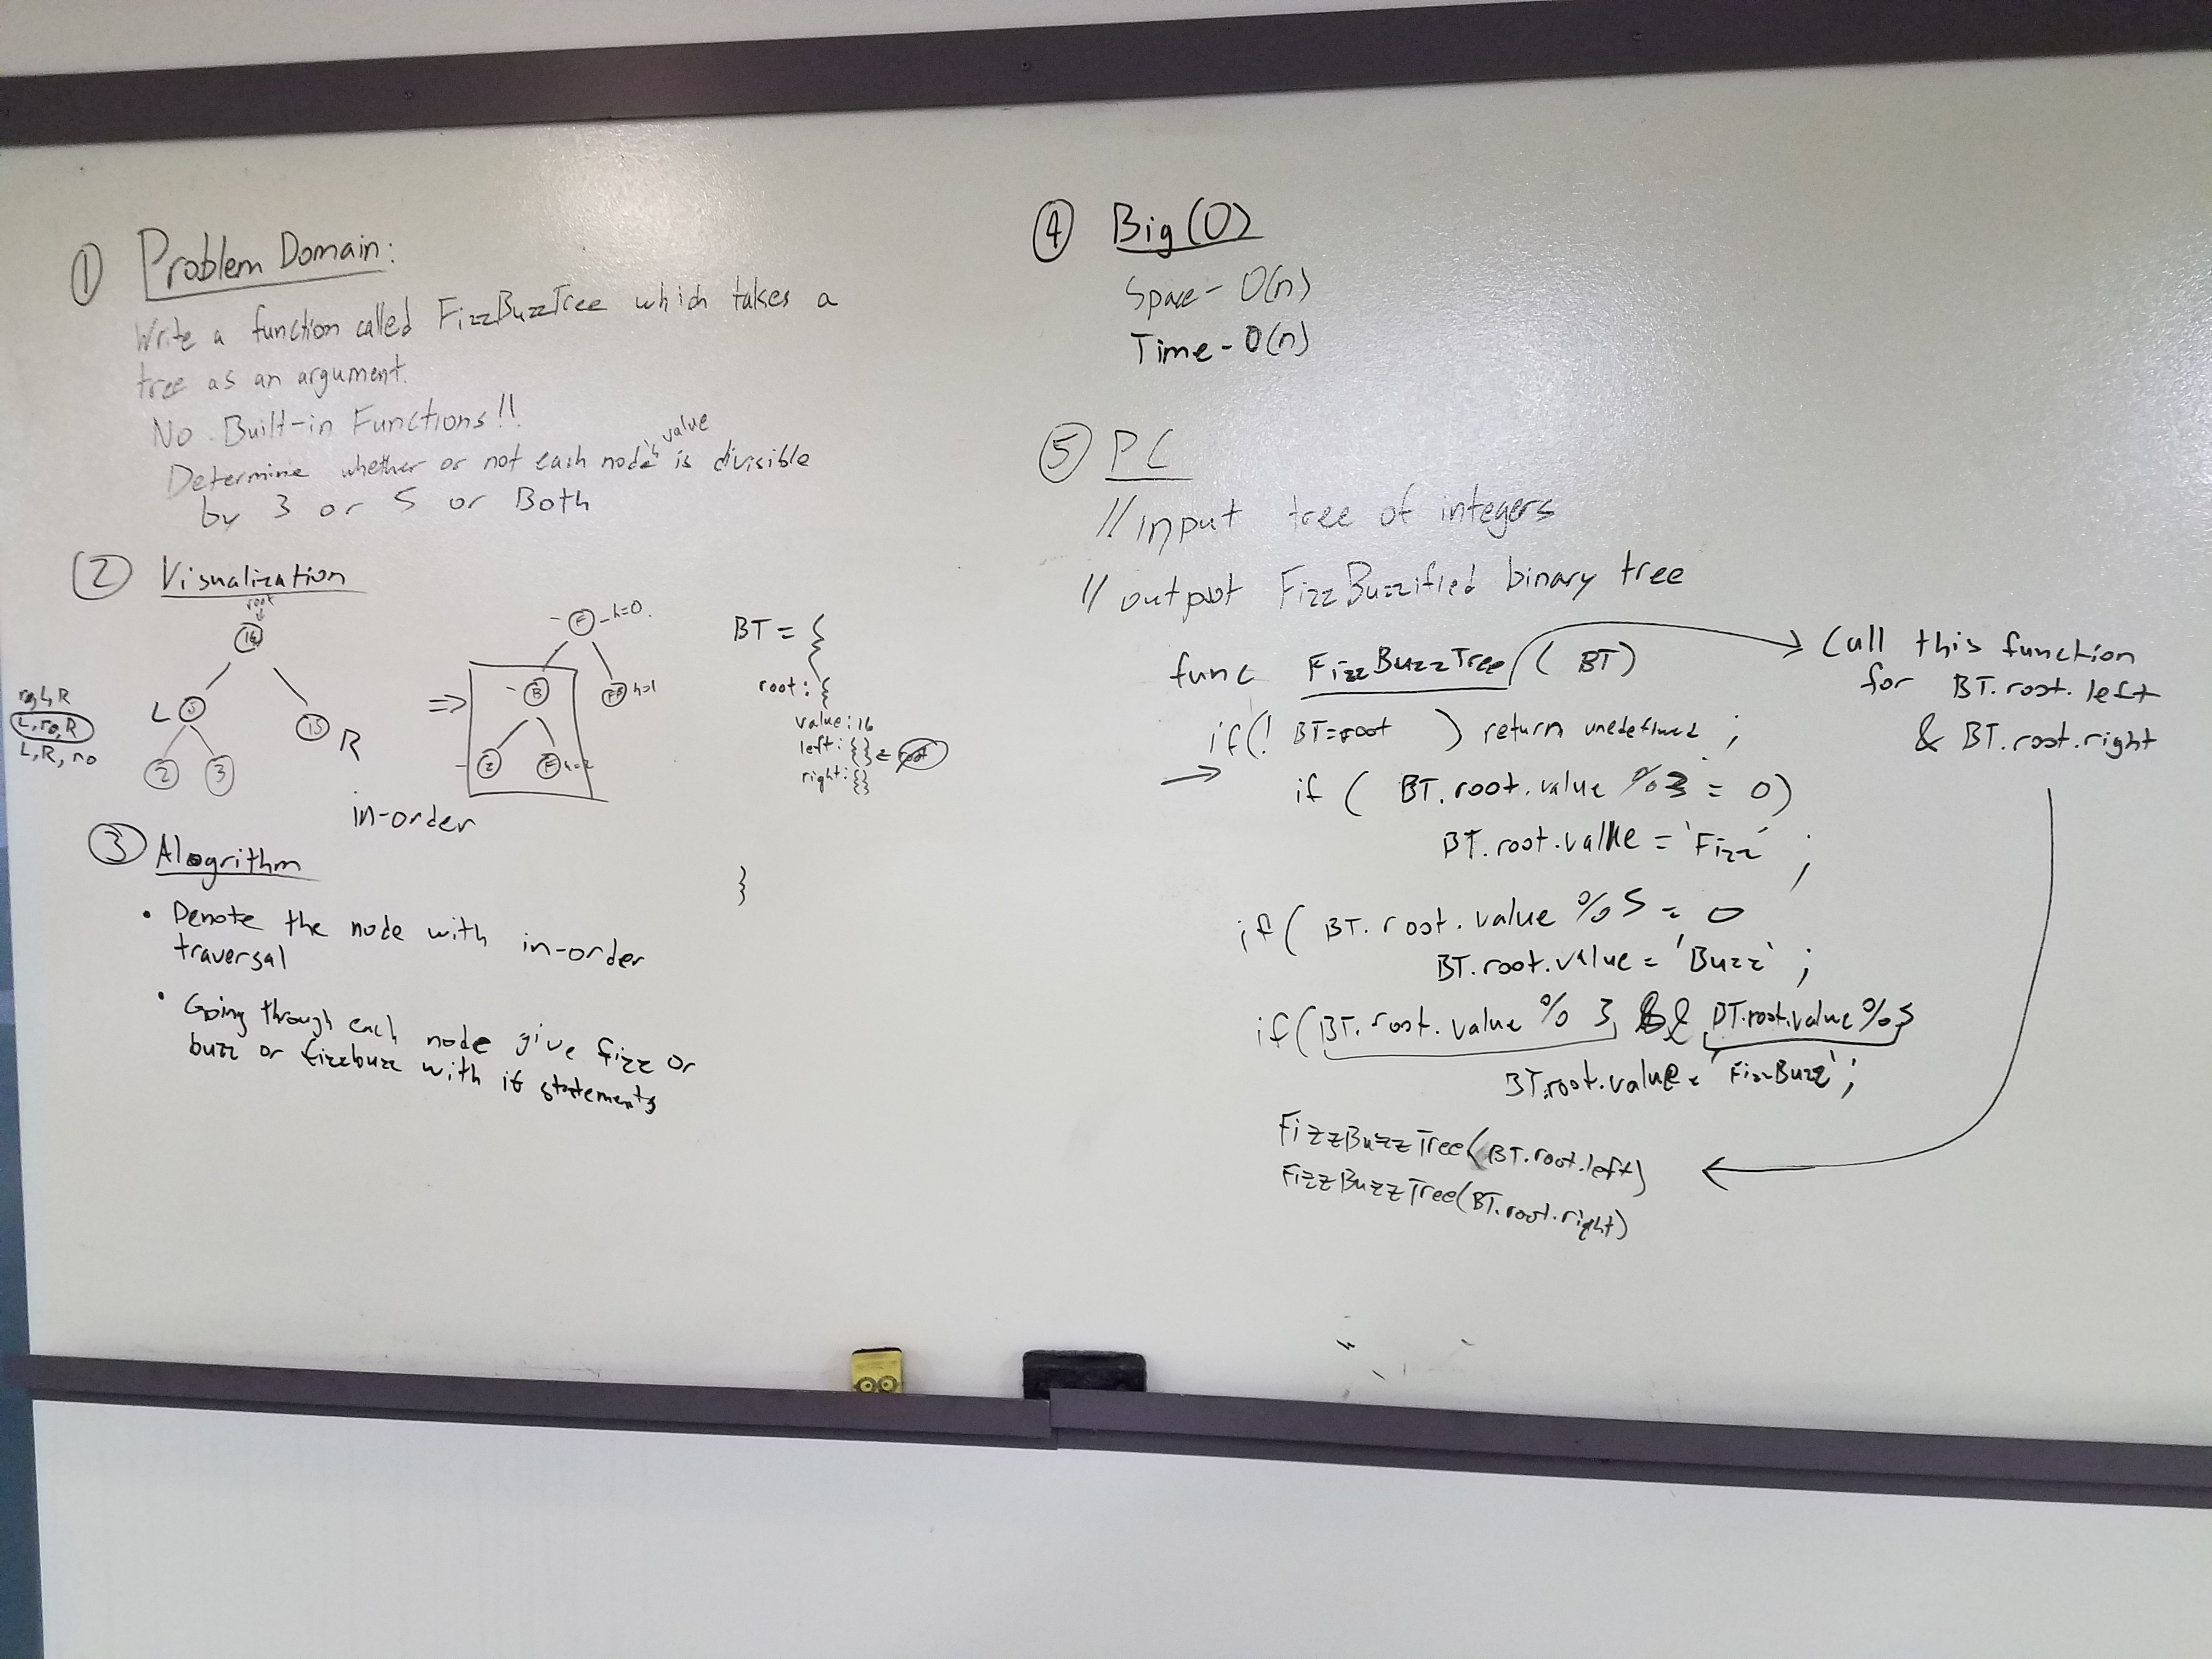 ① Problem Domain:
Write a function called FizzBuzzTree which takes a
tree as an argument.
No Built-in Functions!!
Determine whether or not each node's value is divisible
by 3 or 5 or Both
② Visualization
root
L 5
15 R
2 3
L, ro, R
L, R, ro
in-order
⇒
F - h=0.
B
FB h=1
2
F h=2
BT = {
root: {
value: 16
left: {}
right: {}
}
③ Alogrithm
• Denote the node with in-order
traversal
• Going through each node give fizz or
buzz or fizzbuzz with if statements
④ Big(O)
Space - O(n)
Time - O(n)
⑤ PC
// input tree of integers
// output FizzBuzzified binary tree
func FizzBuzzTree (BT)
if(! BT=root ) return unedefined ;
→ if ( BT.root.value %3 = 0)
BT.root.value = 'Fizz' ;
if( BT.root.value %5 = 0
BT.root.value = 'Buzz' ;
if(BT.root.value % 3 && BT.root.value %5
BT.root.value = 'FizzBuzz' ;
FizzBuzzTree(BT.root.left)
FizzBuzzTree(BT.root.right)
Call this function
for BT.root.left
& BT.root.right